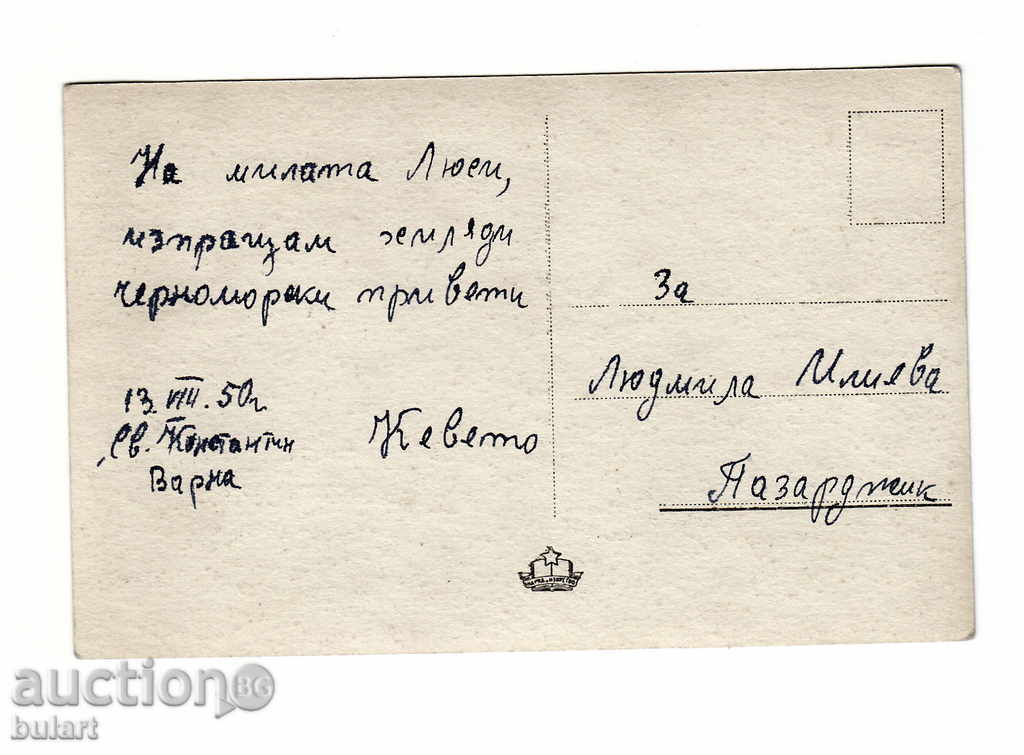 На милата Люси,
изпращам хиляди
черноморски привети
13.VIII.50г.
Св. Константин
Варна
Кевето
За
Людмила Илиева
Пазарджик
НАУКА И ИЗКУСТВО
auction BG
bulart